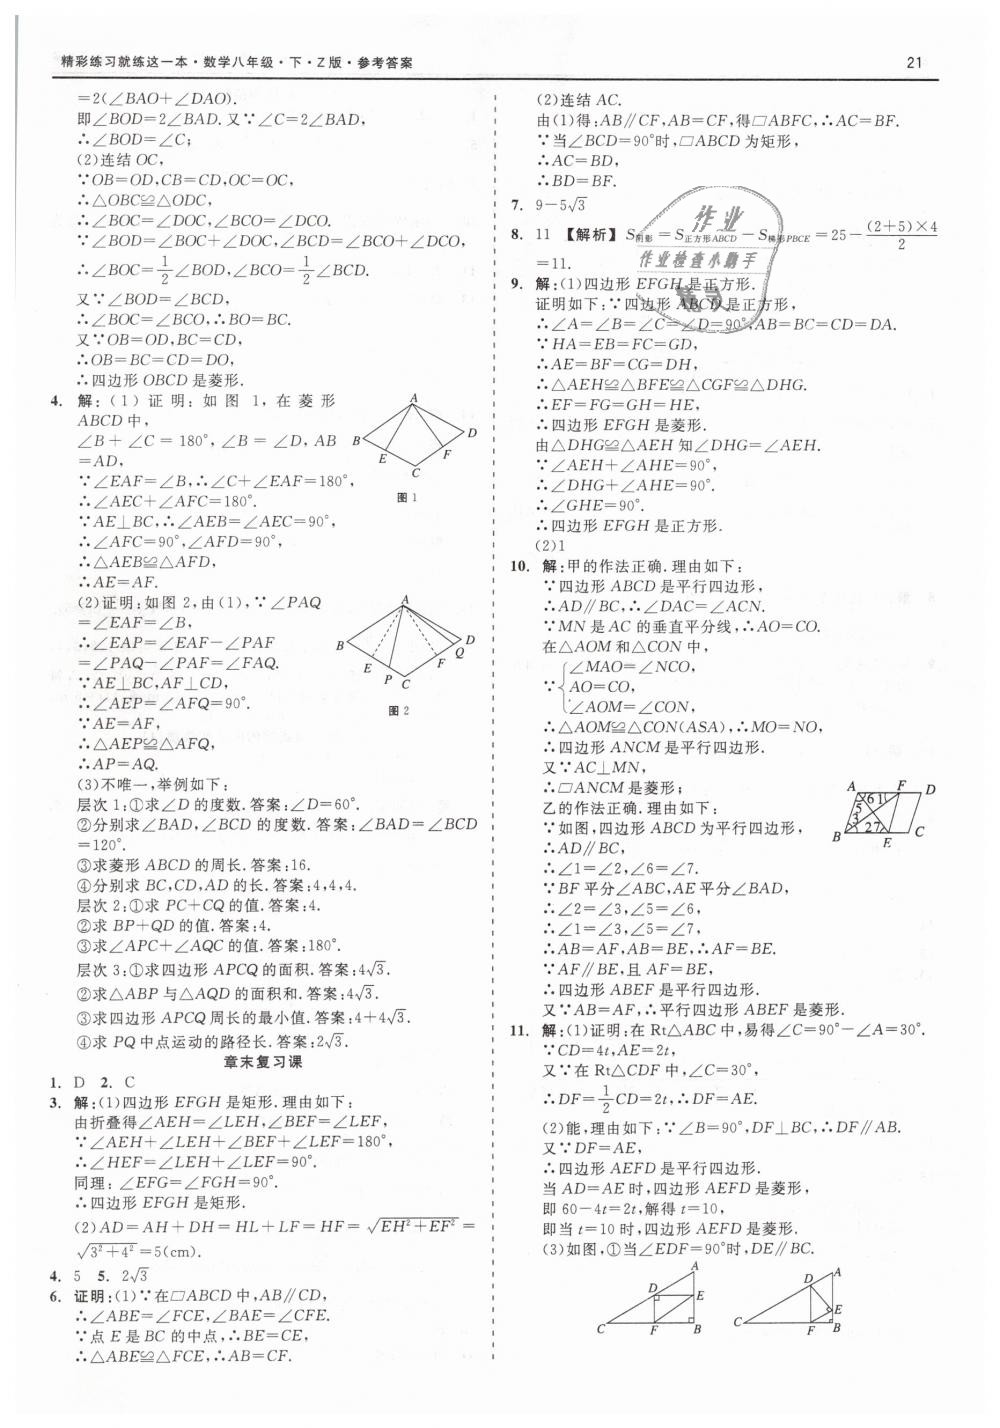 精彩练习就练这一本·数学八年级·下·Z版·参考答案
21
=2(∠BAO+∠DAO).
即∠BOD=2∠BAD.又∵∠C=2∠BAD,
∴∠BOD=∠C;
(2)连结OC,
∵OB=OD,CB=CD,OC=OC,
∴△OBC≌△ODC,
∴∠BOC=∠DOC,∠BCO=∠DCO.
∵∠BOD=∠BOC+∠DOC,∠BCD=∠BCO+∠DCO,
∴∠BOC=1/2∠BOD,∠BCO=1/2∠BCD.
又∵∠BOD=∠BCD,
∴∠BOC=∠BCO,∴BO=BC.
又∵OB=OD,BC=CD,
∴OB=BC=CD=DO,
∴四边形OBCD是菱形.
4. 解:(1)证明:如图1,在菱形
ABCD中,
∠B+∠C=180°,∠B=∠D,AB
=AD,
∵∠EAF=∠B,∴∠C+∠EAF=180°,
∴∠AEC+∠AFC=180°.
∵AE⊥BC,∴∠AEB=∠AEC=90°,
∴∠AFC=90°,∠AFD=90°,
∴△AEB≌△AFD,
∴AE=AF.
A
B
D
E
F
C
图1
(2)证明:如图2,由(1),∵∠PAQ
=∠EAF=∠B,
∴∠EAP=∠EAF-∠PAF
=∠PAQ-∠PAF=∠FAQ.
∵AE⊥BC,AF⊥CD,
∴∠AEP=∠AFQ=90°.
∵AE=AF,
∴△AEP≌△AFQ,
∴AP=AQ.
A
B
D
Q
E
F
P C
图2
(3)不唯一,举例如下:
层次1:①求∠D的度数.答案:∠D=60°.
②分别求∠BAD,∠BCD的度数.答案:∠BAD=∠BCD
=120°.
③求菱形ABCD的周长.答案:16.
④分别求BC,CD,AD的长.答案:4,4,4.
层次2:①求PC+CQ的值.答案:4.
②求BP+QD的值.答案:4.
③求∠APC+∠AQC的值.答案:180°.
层次3:①求四边形APCQ的面积.答案:4√3.
②求△ABP与△AQD的面积和.答案:4√3.
③求四边形APCQ周长的最小值.答案:4+4√3.
④求PQ中点运动的路径长.答案:2√3.
章末复习课
1. D 2. C
3. 解:(1)四边形EFGH是矩形.理由如下:
由折叠得∠AEH=∠LEH,∠BEF=∠LEF,
∵∠AEH+∠LEH+∠BEF+∠LEF=180°,
∴∠HEF=∠LEH+∠LEF=90°.
同理:∠EFG=∠FGH=90°.
∴四边形EFGH是矩形.
(2)AD=AH+DH=HL+LF=HF=√(EH²+EF²)=
√(3²+4²)=5(cm).
4. 5 5. 2√3
6. 证明:(1)∵在▱ABCD中,AB∥CD,
∴∠ABE=∠FCE,∠BAE=∠CFE.
∵点E是BC的中点,∴BE=CE,
∴△ABE≌△FCE,∴AB=CF.
(2)连结AC.
由(1)得:AB∥CF,AB=CF,得▱ABFC,∴AC=BF.
∵当∠BCD=90°时,▱ABCD为矩形,
∴AC=BD,
∴BD=BF.
7. 9-5√3
8. 11 【解析】S阴影=S正方形ABCD-S梯形PBCE=25-(2+5)×4/2
=11.
作业
作业检查小助手
9. 解:(1)四边形EFGH是正方形.
证明如下:∵四边形ABCD是正方形,
∴∠A=∠B=∠C=∠D=90°,AB=BC=CD=DA.
∵HA=EB=FC=GD,
∴AE=BF=CG=DH,
∴△AEH≌△BFE≌△CGF≌△DHG.
∴EF=FG=GH=HE,
∴四边形EFGH是菱形.
由△DHG≌△AEH知∠DHG=∠AEH.
∵∠AEH+∠AHE=90°,
∴∠DHG+∠AHE=90°.
∴∠GHE=90°.
∴四边形EFGH是正方形.
(2)1
10. 解:甲的作法正确.理由如下:
∵四边形ABCD是平行四边形,
∴AD∥BC,∴∠DAC=∠ACN.
∵MN是AC的垂直平分线,∴AO=CO.
在△AOM和△CON中,
∠MAO=∠NCO,
∵{AO=CO,
∠AOM=∠CON,
∴△AOM≌△CON(ASA),∴MO=NO,
∴四边形ANCM是平行四边形.
又∵AC⊥MN,
∴▱ANCM是菱形;
乙的作法正确.理由如下:
∵如图,四边形ABCD为平行四边形,
∴AD∥BC,
∴∠1=∠2,∠6=∠7.
∵BF平分∠ABC,AE平分∠BAD,
∴∠2=∠3,∠5=∠6,
∴∠1=∠3,∠5=∠7,
∴AB=AF,AB=BE,∴AF=BE.
∵AF∥BE,且AF=BE,
∴四边形ABEF是平行四边形.
又∵AB=AF,∴平行四边形ABEF是菱形.
A F D
6 1
5
3
2 7
B E C
11. 解:(1)证明:在Rt△ABC中,易得∠C=90°-∠A=30°.
∵CD=4t,AE=2t,
又∵在Rt△CDF中,∠C=30°,
∴DF=1/2CD=2t,∴DF=AE.
(2)能,理由如下:∵∠B=90°,DF⊥BC,∴DF∥AB.
又∵DF=AE,
∴四边形AEFD是平行四边形.
当AD=AE时,四边形AEFD是菱形,
即60-4t=2t,解得t=10,
即当t=10时,四边形AEFD是菱形.
(3)如图,①当∠EDF=90°时,DE∥BC.
A
D
E
C F B
A
D
E
C F B